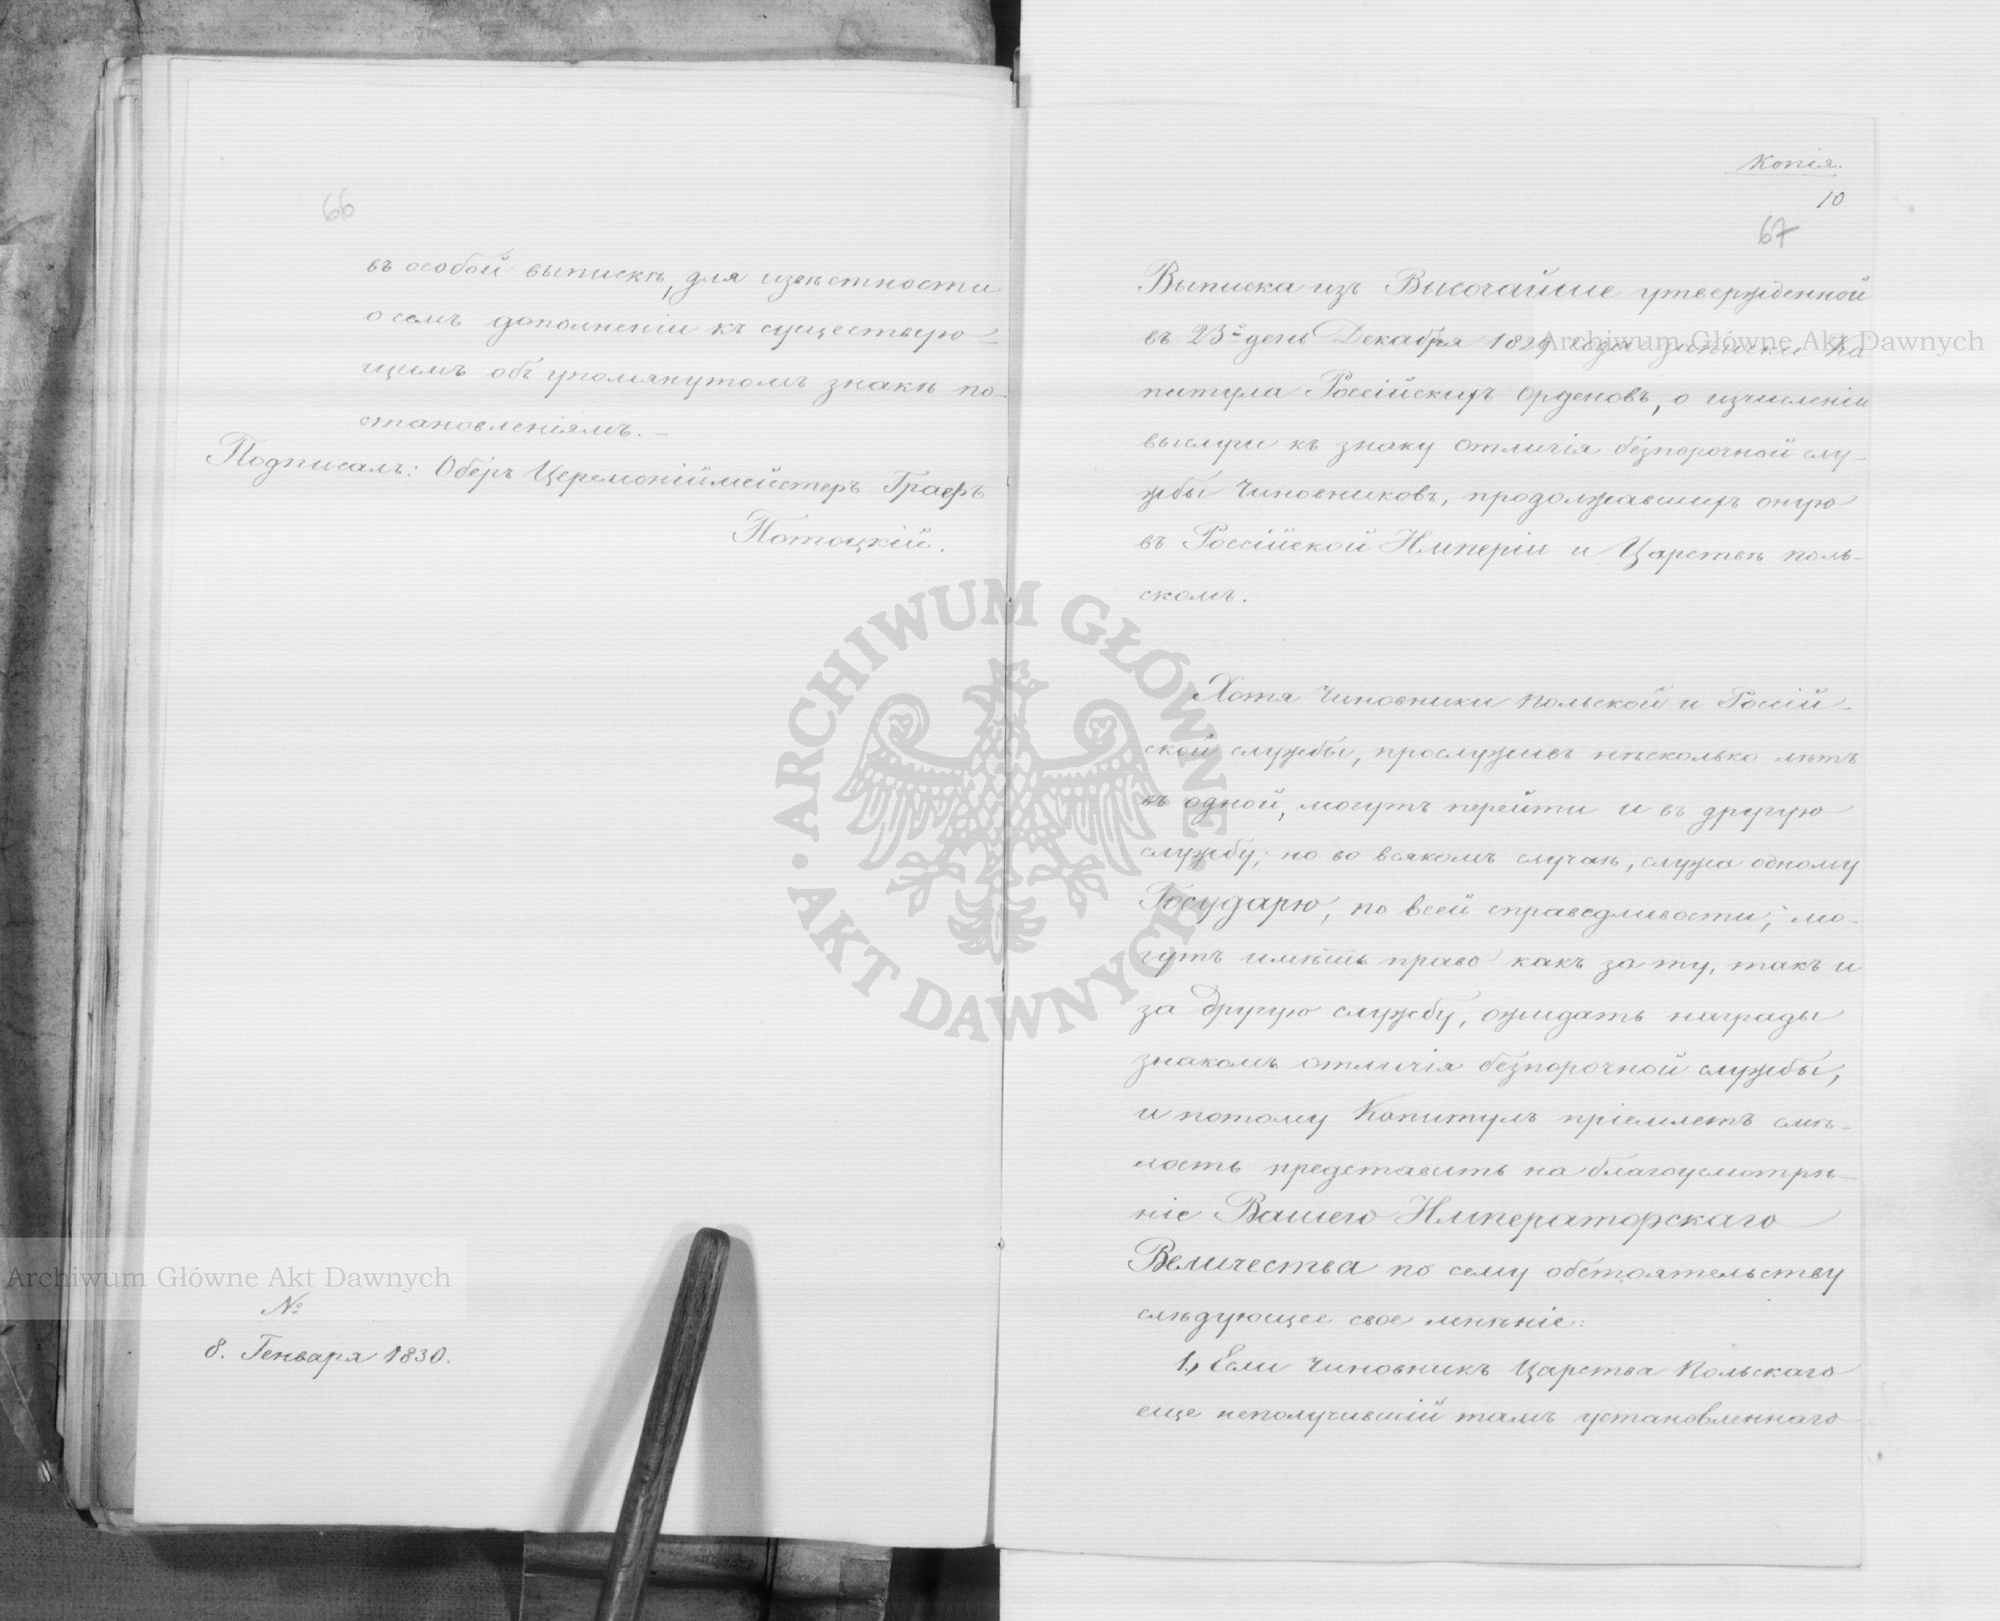 66
въ особой выпискѣ, для извѣстности
о семъ дополненіи къ существую-
щимъ объ упомянутомъ знакѣ по-
становленіямъ.-
Подписалъ: Оберъ Церемоніймейстеръ Графъ
Потоцкій.
№
8. Генваря 1830.
Копія.
10
67
Выписка изъ Высочайше утвержденной
въ 23й день Декабря 1829 года записки Ка
питула Россійскихъ Орденовъ, о изчисленіи
выслуги къ знаку отличія безпорочной слу-
жбы Чиновниковъ, продолжавшихъ оную
въ Россійской Имперіи и Царствѣ Поль-
скомъ.
Хотя Чиновники Польской и Россій-
ской службы, прослуживъ нѣсколько лѣтъ
въ одной, могутъ перейти и въ другую
службу; но во всякомъ случаѣ, служа одному
Государю, по всей справедливости, мо-
гутъ имѣть право какъ за ту, такъ и
за другую службу, ожидать награды
знакомъ отличія безпорочной службы,
и потому Капитулъ пріемлетъ смѣ-
лость представить на благоусмотрѣ-
ніе Вашего Императорскаго
Величества по сему обстоятельству
слѣдующее свое мнѣніе:
1., Если чиновникъ Царства Польскаго
еще неполучившій тамъ установленнаго
ARCHIWUM GŁÓWNE AKT DAWNYCH
Archiwum Główne Akt Dawnych
Archiwum Główne Akt Dawnych